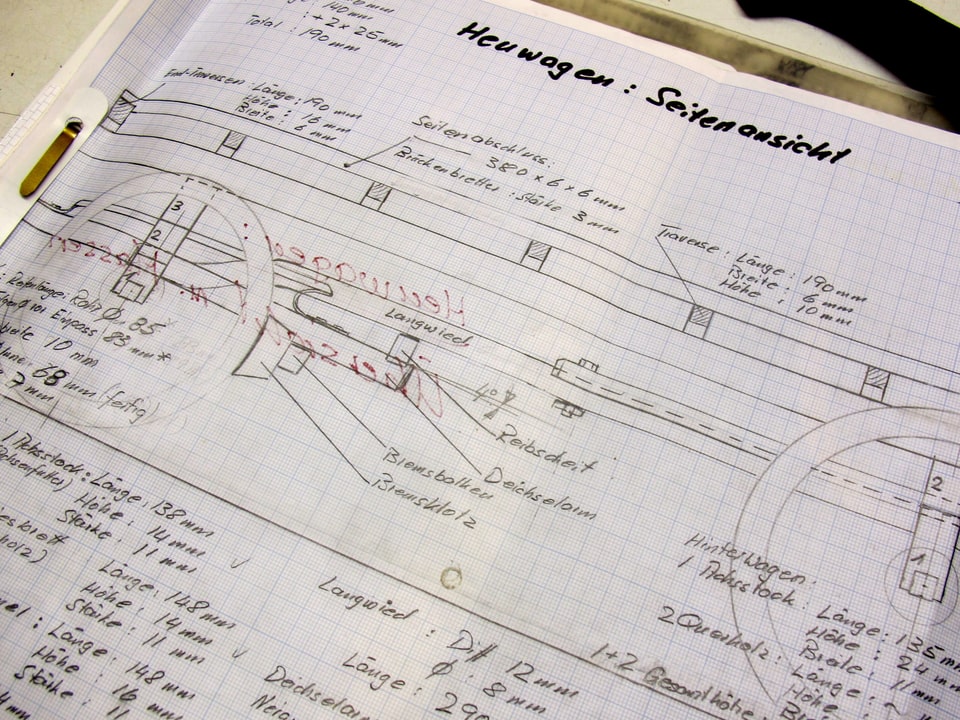 140 mm
: + 2 x 25 mm
Total : 190 mm
Heuwagen : Seitenansicht
End-Traversen : Länge : 190 mm
Höhe : 16 mm
Breite : 6 mm
Seitenabschluss :
380 x 6 x 6 mm
Brückenbretter : Stärke 3 mm
Traverse : Länge : 190 mm
Breite : 6 mm
Höhe : 10 mm
3
2
1
Heuwagen :
Langwied
4°
Reibscheit
Deichselarm
Bremsbalken
Bremsklotz
Rohr Ø 85
Einpass : 83 mm *
10 mm
68 mm (fertig)
7 mm
1 Achsstock : Länge : 138 mm
Höhe : 14 mm
Stärke : 11 mm ✓
Länge : 148 mm
Höhe : 14 mm
Stärke : 11 mm ✓
Länge : 148 mm
Höhe : 16 mm
Stärke : 11
Langwied : Diff 12 mm
Ø : 8 mm
Länge : 290
Deichselarm
2
1
Hinterwagen :
1 Achsstock : Länge : 135 mm
Höhe : 24 mm
Breite : 11 mm
2 Querholz : Länge :
Höhe :
1 + 2 Gesamthöhe